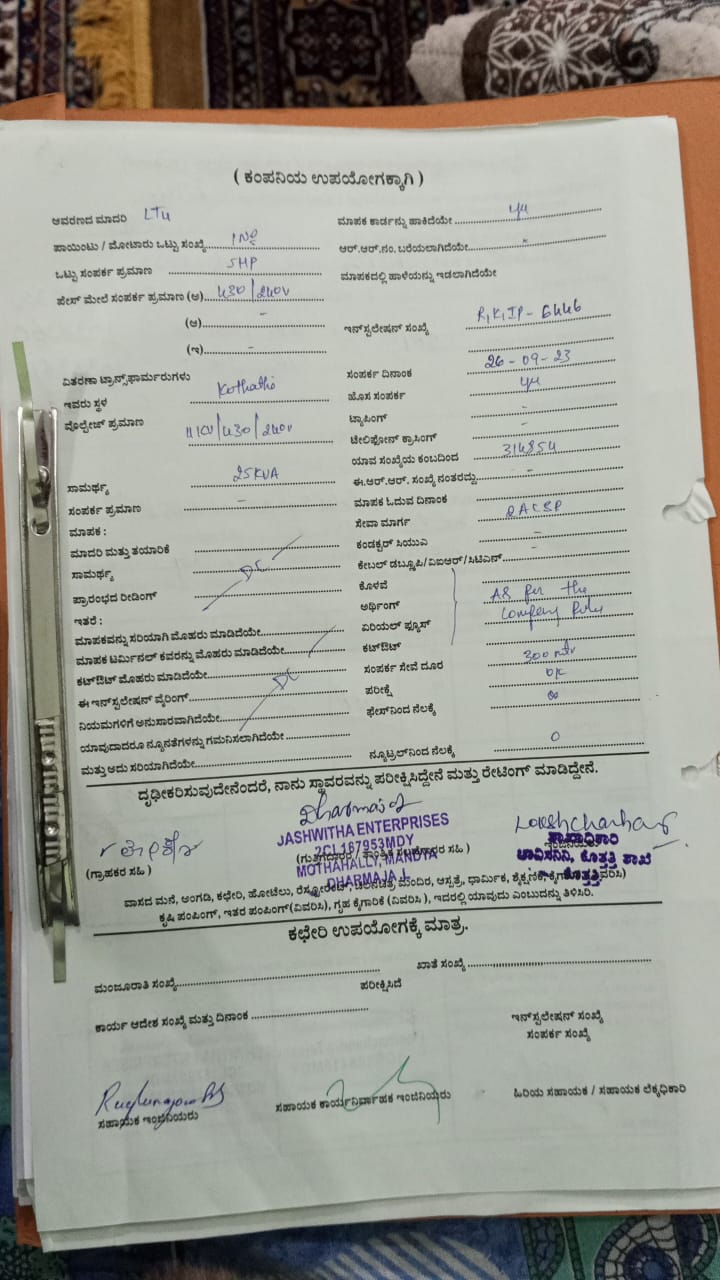 ( ಕಂಪನಿಯ ಉಪಯೋಗಕ್ಕಾಗಿ )
ಆವರಣದ ಮಾದರಿ LT4
ಮಾಪಕ ಕಾರ್ಡನ್ನು ಹಾಕಿದೆಯೇ
ಪಾಯಿಂಟು / ಮೋಟಾರು ಒಟ್ಟು ಸಂಖ್ಯೆ 1No
ಆರ್.ಆರ್.ನಂ. ಬರೆಯಲಾಗಿದೆಯೇ
ಒಟ್ಟು ಸಂಪರ್ಕ ಪ್ರಮಾಣ 5HP
ಮಾಪಕದಲ್ಲಿ ಹಾಳೆಯನ್ನು ಇಡಲಾಗಿದೆಯೇ
ಫೇಸ್ ಮೇಲೆ ಸಂಪರ್ಕ ಪ್ರಮಾಣ (ಅ) 430/240V
(ಆ) -
ಇನ್‌ಸ್ಟಲೇಷನ್ ಸಂಖ್ಯೆ R,K,IP- 6446
(ಇ) -
ವಿತರಣಾ ಟ್ರಾನ್ಸ್‌ಫಾರ್ಮರುಗಳು
ಸಂಪರ್ಕ ದಿನಾಂಕ 26-09-23
ಇವರು ಸ್ಥಳ Kothathi
ಹೊಸ ಸಂಪರ್ಕ
ವೊಲ್ಟೇಜ್ ಪ್ರಮಾಣ 11KV/430/240V
ಟ್ಯಾಪಿಂಗ್ -
ಟೆಲಿಫೋನ್ ಕ್ರಾಸಿಂಗ್ -
ಯಾವ ಸಂಖ್ಯೆಯ ಕಂಬದಿಂದ 314854
ಸಾಮರ್ಥ್ಯ 25KVA
ಈ.ಆರ್.ಆರ್. ಸಂಖ್ಯೆ ನಂತರದ್ದು -
ಸಂಪರ್ಕ ಪ್ರಮಾಣ -
ಮಾಪಕ ಓದುವ ದಿನಾಂಕ
ಮಾಪಕ :
ಸೇವಾ ಮಾರ್ಗ
ಮಾದರಿ ಮತ್ತು ತಯಾರಿಕೆ
ಕಂಡಕ್ಟರ್ ಸಿಯುಎ -
ಸಾಮರ್ಥ್ಯ DC
ಕೇಬಲ್ ಡಬ್ಲ್ಯೂಪಿ/ವಿಐಆರ್/ಸಿಟಿಎಸ್ -
ಪ್ರಾರಂಭದ ರೀಡಿಂಗ್
ಕೊಳವೆ
ಅರ್ಥಿಂಗ್ As per the
ಇತರೆ :
ಏರಿಯಲ್ ಫ್ಯೂಸ್ Company Rules
ಮಾಪಕವನ್ನು ಸರಿಯಾಗಿ ಮೊಹರು ಮಾಡಿದೆಯೇ
ಕಟ್‌ಔಟ್
ಮಾಪಕ ಟರ್ಮಿನಲ್ ಕವರನ್ನು ಮೊಹರು ಮಾಡಿದೆಯೇ
ಸಂಪರ್ಕ ಸೇವೆ ದೂರ 300 mtr
ಕಟ್‌ಔಟ್ ಮೊಹರು ಮಾಡಿದೆಯೇ DC
ಪರೀಕ್ಷೆ OK
ಈ ಇನ್‌ಸ್ಟಲೇಷನ್ ವೈರಿಂಗ್
ಫೇಸ್‌ನಿಂದ ನೆಲಕ್ಕೆ
ನಿಯಮಗಳಿಗೆ ಅನುಸಾರವಾಗಿದೆಯೇ
ಯಾವುದಾದರೂ ನ್ಯೂನತೆಗಳನ್ನು ಗಮನಿಸಲಾಗಿದೆಯೇ
ನ್ಯೂಟ್ರಲ್‌ನಿಂದ ನೆಲಕ್ಕೆ 0
ಮತ್ತು ಅದು ಸರಿಯಾಗಿದೆಯೇ
ದೃಢೀಕರಿಸುವುದೇನೆಂದರೆ, ನಾನು ಸ್ಥಾವರವನ್ನು ಪರೀಕ್ಷಿಸಿದ್ದೇನೆ ಮತ್ತು ರೇಟಿಂಗ್ ಮಾಡಿದ್ದೇನೆ.
JASHWITHA ENTERPRISES
2CL167953MDY
MOTHAHALLY, MANDYA
DHARMAJA J.
ಶಾಖಾಧಿಕಾರಿ
ಚಾವಿಸನಿನಿ, ಕೊತ್ತತ್ತಿ ಶಾಖೆ
ಕೊತ್ತತ್ತಿ
(ಗ್ರಾಹಕರ ಸಹಿ )
ವಾಸದ ಮನೆ, ಅಂಗಡಿ, ಕಛೇರಿ, ಹೋಟೆಲು, ಮಂದಿರ, ಆಸ್ಪತ್ರೆ, ಧಾರ್ಮಿಕ,
ಕೃಷಿ ಪಂಪಿಂಗ್, ಇತರ ಪಂಪಿಂಗ್(ವಿವರಿಸಿ), ಗೃಹ ಕೈಗಾರಿಕೆ (ವಿವರಿಸಿ ), ಇದರಲ್ಲಿ ಯಾವುದು ಎಂಬುದನ್ನು ತಿಳಿಸಿರಿ.
ಕಛೇರಿ ಉಪಯೋಗಕ್ಕೆ ಮಾತ್ರ.
ಮಂಜೂರಾತಿ ಸಂಖ್ಯೆ
ಖಾತೆ ಸಂಖ್ಯೆ
ಪರೀಕ್ಷಿಸಿದೆ
ಕಾರ್ಯ ಆದೇಶ ಸಂಖ್ಯೆ ಮತ್ತು ದಿನಾಂಕ
ಇನ್‌ಸ್ಟಲೇಷನ್ ಸಂಖ್ಯೆ
ಸಂಪರ್ಕ ಸಂಖ್ಯೆ
ಸಹಾಯಕ ಇಂಜಿನಿಯರು
ಸಹಾಯಕ ಕಾರ್ಯನಿರ್ವಾಹಕ ಇಂಜಿನಿಯರು
ಹಿರಿಯ ಸಹಾಯಕ / ಸಹಾಯಕ ಲೆಕ್ಕಧಿಕಾರಿ